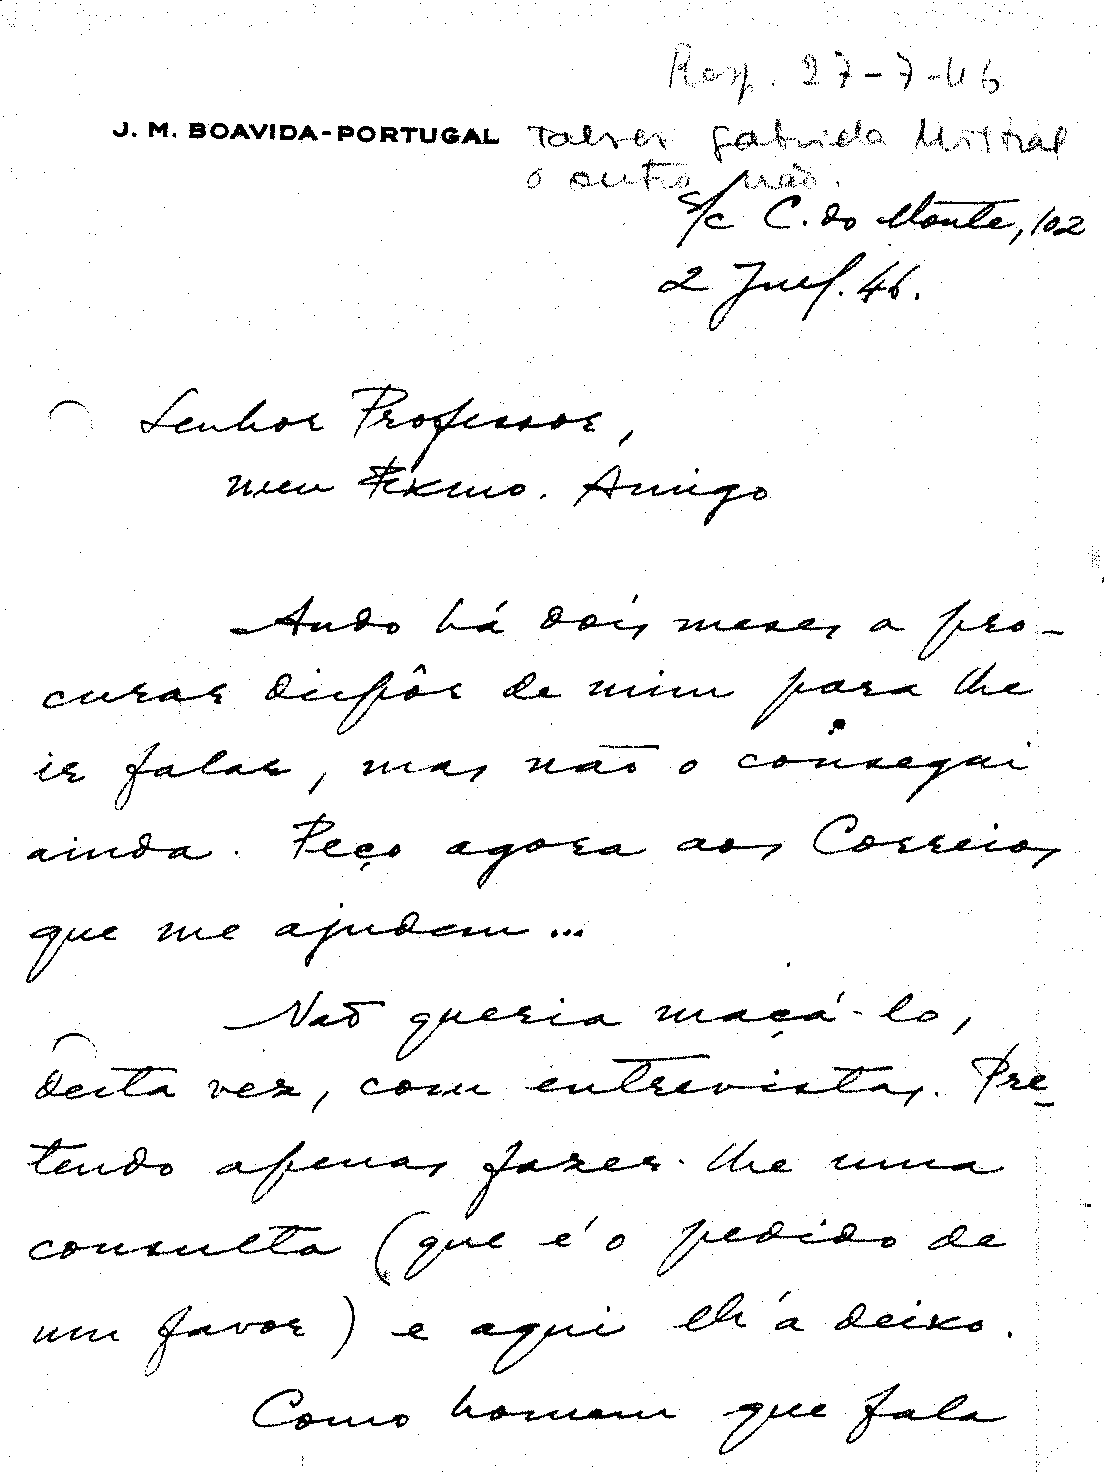 Resp. 27-7-46
J. M. BOAVIDA-PORTUGAL
Talvez Gabriela Mistral
o outro não.
s/c C. do Monte, 102
2 Jul. 46.
Senhor Professor,
meu Exmo. Amigo
Ando há dois meses a pro-
curar dispôr de mim para lhe
ir falar, mas não o consegui
ainda. Peço agora aos Correios
que me ajudem...
Não queria maçá-lo,
desta vez, com entrevistas. Pre-
tendo apenas fazer-lhe uma
consulta (que é o pedido de
um favor) e aqui lh'a deixo.
Como homem que fala